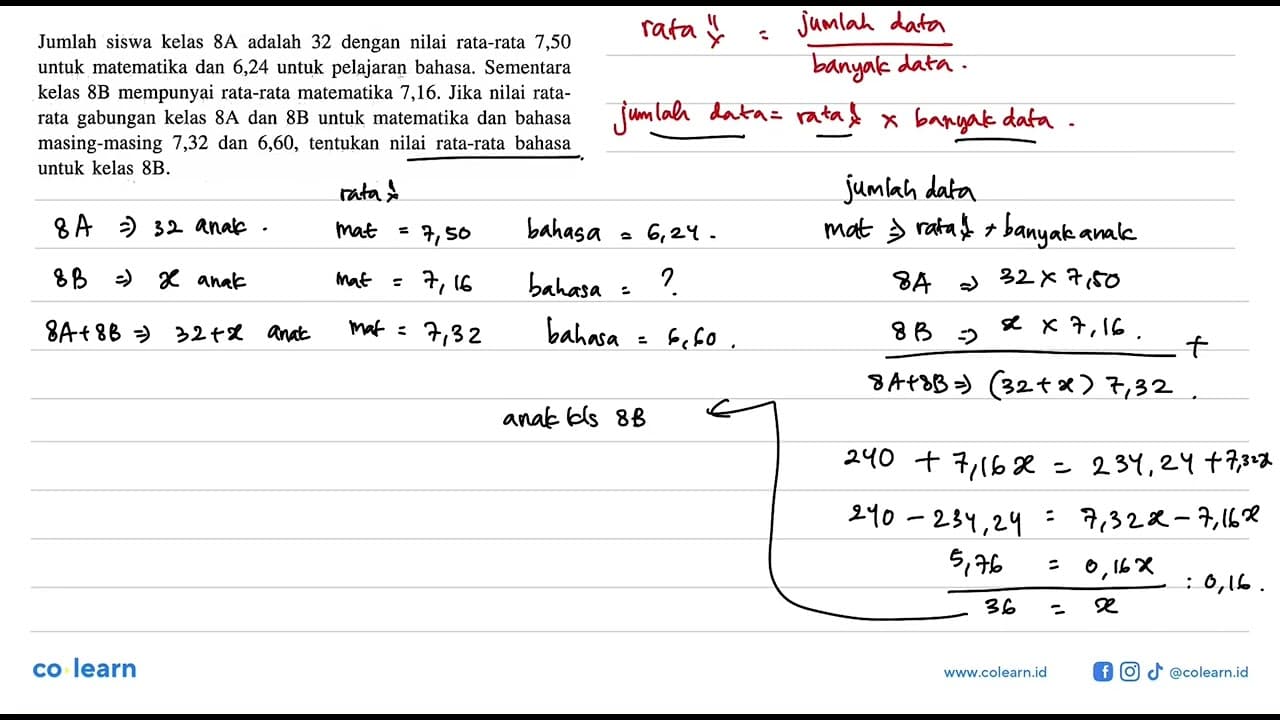 Jumlah siswa kelas 8A adalah 32 dengan nilai rata-rata 7,50
untuk matematika dan 6,24 untuk pelajaran bahasa. Sementara
kelas 8B mempunyai rata-rata matematika 7,16. Jika nilai rata-
rata gabungan kelas 8A dan 8B untuk matematika dan bahasa
masing-masing 7,32 dan 6,60, tentukan nilai rata-rata bahasa
untuk kelas 8B.
rata" = jumlah data
banyak data.
jumlah data = rata² x banyak data.
rata²
8A ⇒ 32 anak. mat = 7,50 bahasa = 6,24.
8B ⇒ x anak mat = 7,16 bahasa = ?
8A+8B ⇒ 32+x anak mat = 7,32 bahasa = 6,60.
anak kls 8B
jumlah data
mat ⇒ rata² + banyak anak
8A ⇒ 32 × 7,50
8B ⇒ x × 7,16. +
8A+8B ⇒ (32+x) 7,32.
240 + 7,16x = 234,24 + 7,32x
240 - 234,24 = 7,32x - 7,16x
5,76 = 0,16x : 0,16.
36 = x
co learn
www.colearn.id @colearn.id